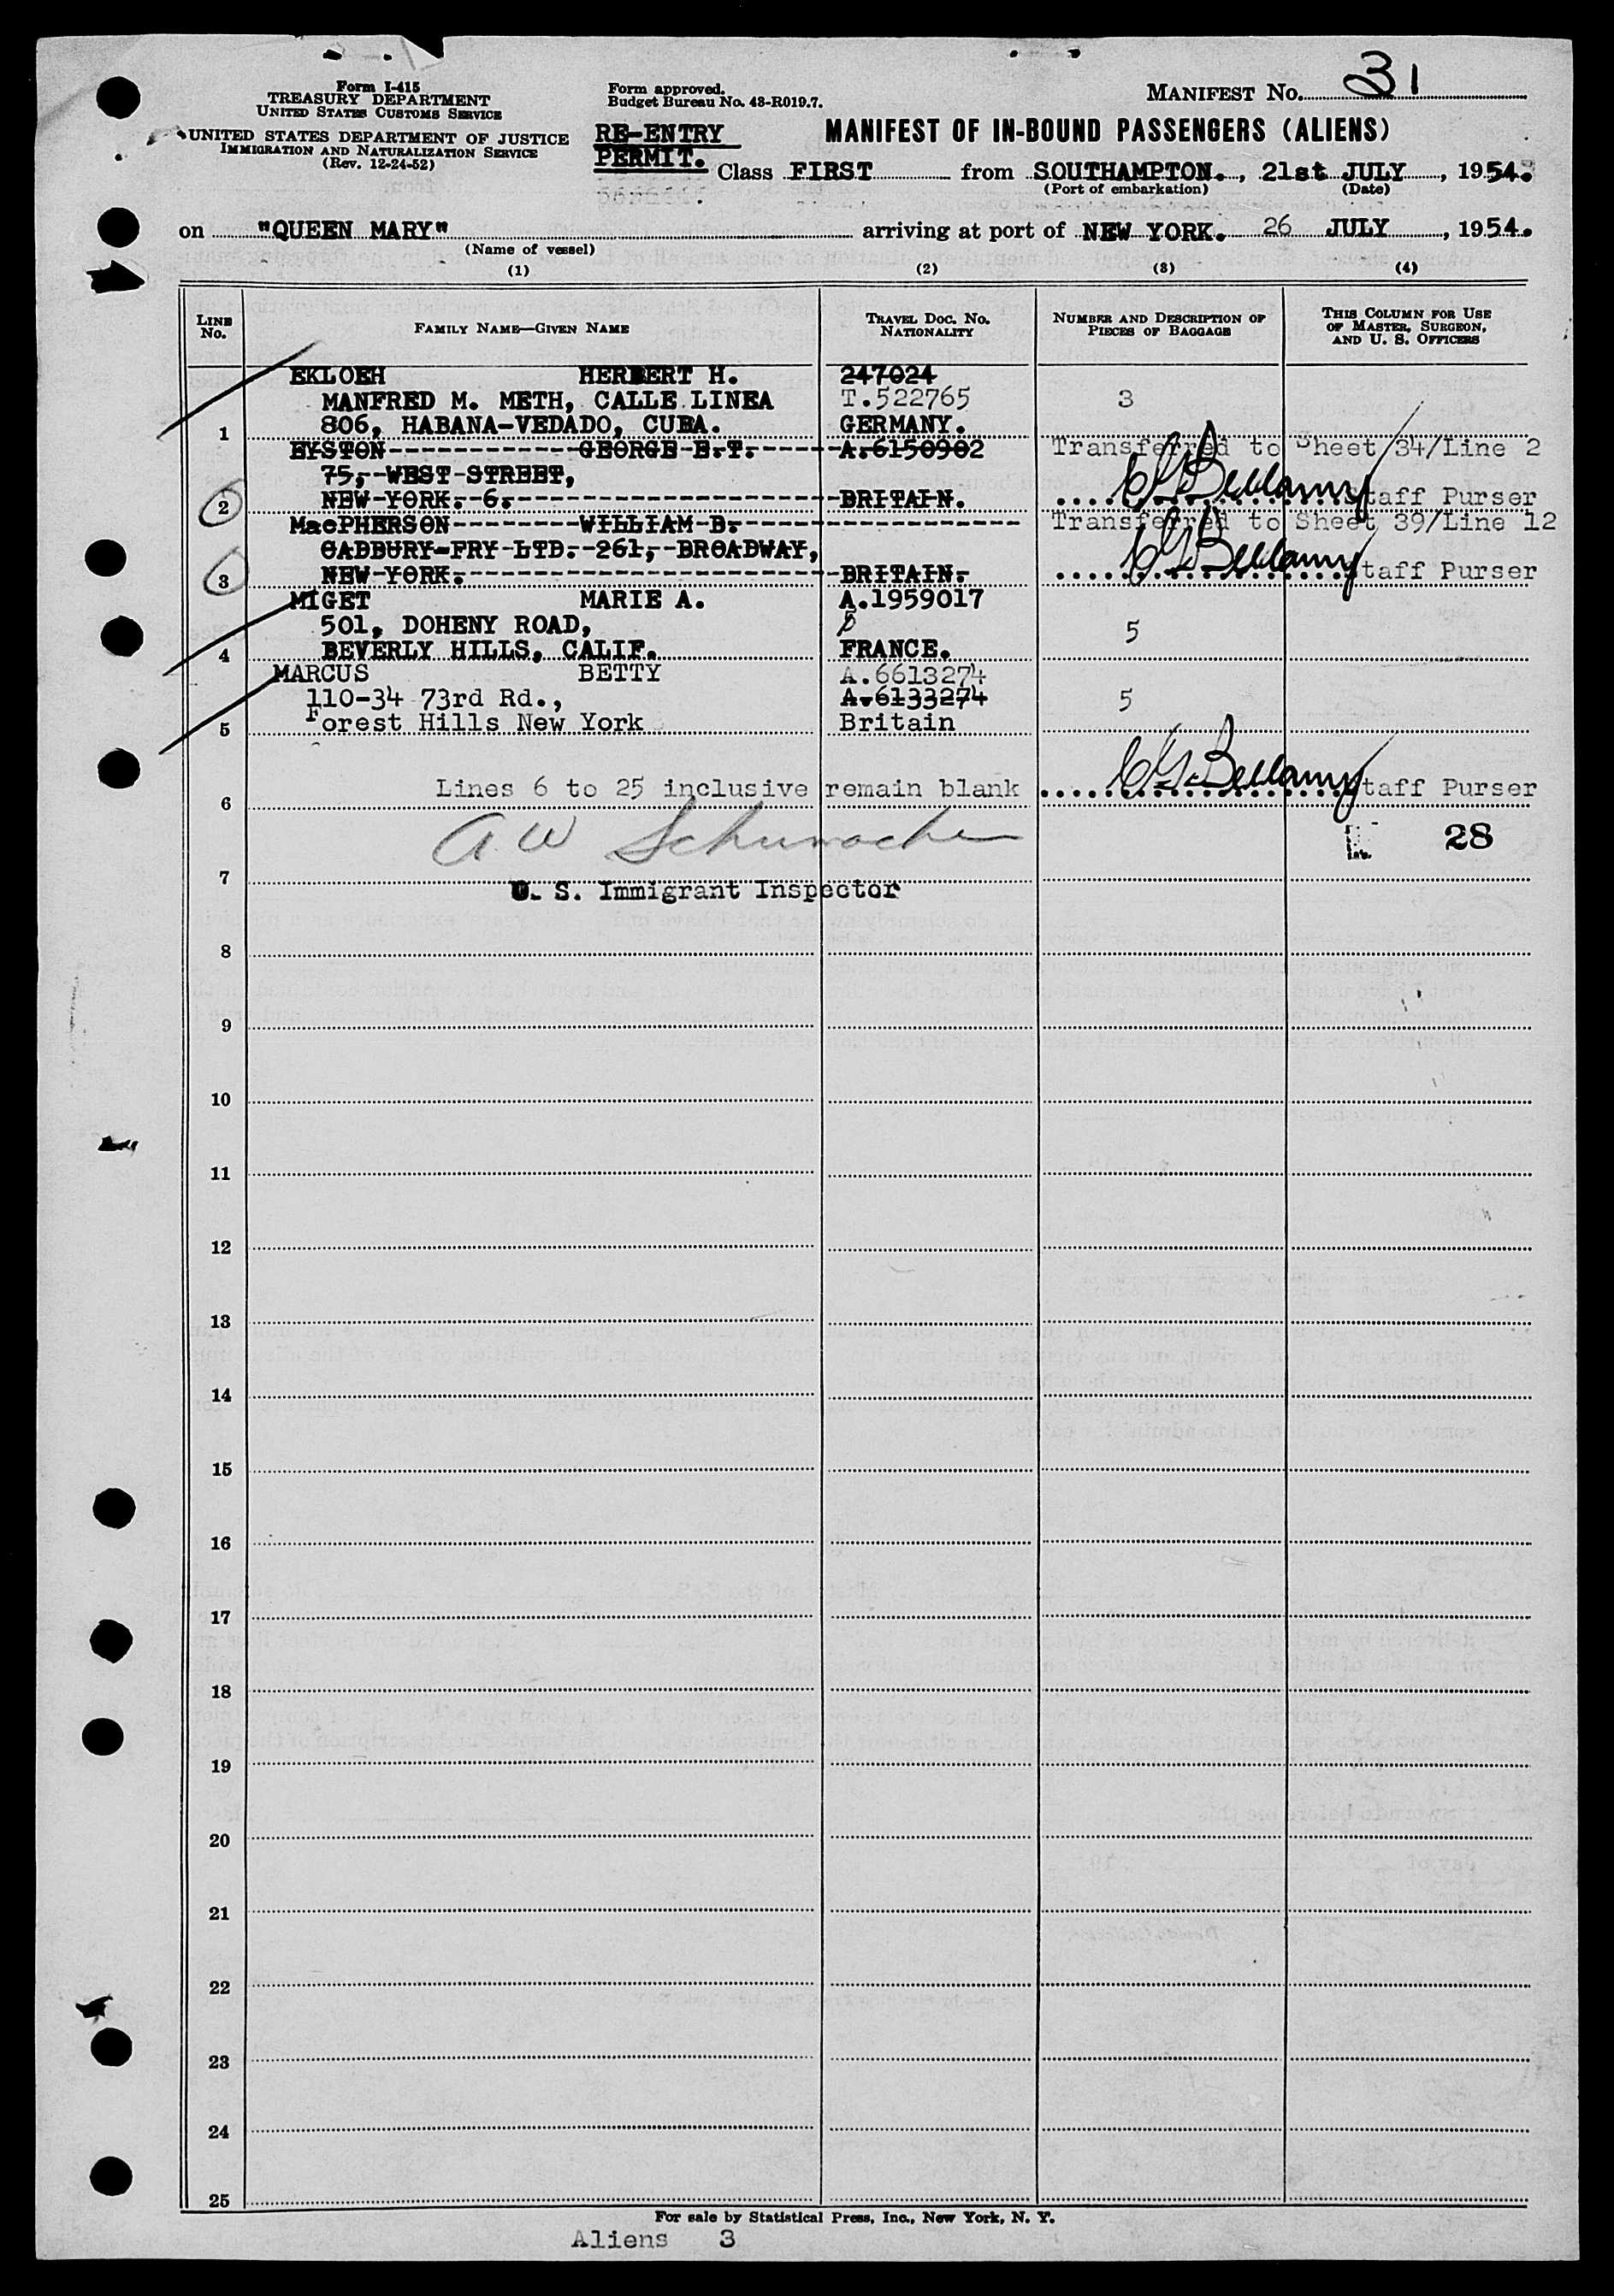 Form I-415
TREASURY DEPARTMENT
UNITED STATES CUSTOMS SERVICE
UNITED STATES DEPARTMENT OF JUSTICE
IMMIGRATION AND NATURALIZATION SERVICE
(Rev. 12-24-52)
Form approved.
Budget Bureau No. 43-R019.7.
MANIFEST No. 31
RE-ENTRY
PERMIT.
MANIFEST OF IN-BOUND PASSENGERS (ALIENS)
Class FIRST from SOUTHAMPTON., 21st JULY, 1954.
(Port of embarkation) (Date)
on "QUEEN MARY" arriving at port of NEW YORK. 26 JULY, 1954.
(Name of vessel)
(1) (2) (3) (4)
LINE No. FAMILY NAME—GIVEN NAME TRAVEL DOC. NO. NATIONALITY NUMBER AND DESCRIPTION OF PIECES OF BAGGAGE THIS COLUMN FOR USE OF MASTER, SURGEON, AND U. S. OFFICERS
EKLOEH HERBERT H. 247024
MANFRED M. METH, CALLE LINEA T.522765 3
1 806, HABANA-VEDADO, CUBA. GERMANY.
EYSTON------------GEORGE E.T.------A.6150902 Transferred to Sheet 34/Line 2
75,--WEST-STREET,
2 NEW-YORK.-6.--------------------BRITAIN. C G Bellamy Staff Purser
MacPHERSON--------WILLIAM-B.------------------ Transferred to Sheet 39/Line 12
CADBURY-FRY-LTD.--261,-BROADWAY,
3 NEW-YORK.-----------------------BRITAIN. C G Bellamy Staff Purser
MIGET MARIE A. A.1959017
501, DOHENY ROAD, 5
4 BEVERLY HILLS, CALIF. FRANCE.
MARCUS BETTY A.6613274
110-34 73rd Rd., A.6133274 5
5 Forest Hills New York Britain
6 Lines 6 to 25 inclusive remain blank C G Bellamy Staff Purser
A W Schumacher
28
7
U. S. Immigrant Inspector
8
9
10
11
12
13
14
15
16
17
18
19
20
21
22
23
24
25
For sale by Statistical Press, Inc., New York, N. Y.
Aliens 3